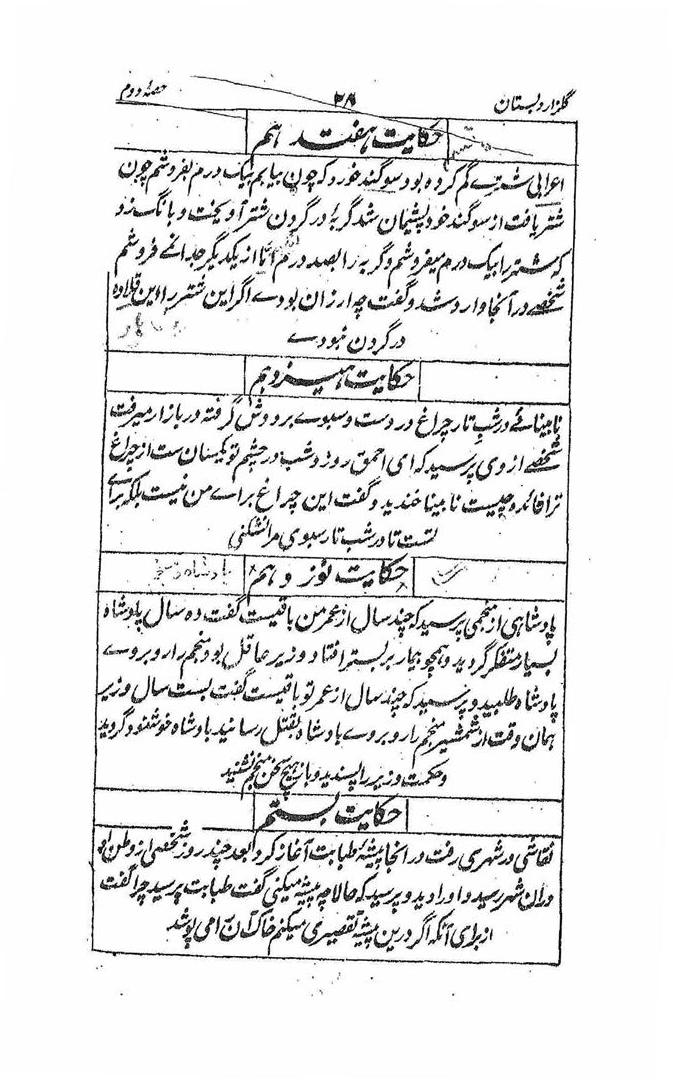 گلزار دبستان ۲۸ حصۂ دوم
حکایت ہفتد ہم
اعرابی شترے گم کردہ بود سوگند خورد کہ چون بیابم بیک درم بفروشم چون
شتر یافت از سوگند خود پشیمان شد گربۂ در گردن شتر آویخت و بانگ زد
کہ شتر را بیک درم میفروشم و گربہ را بصد درم اما از یکدیگر جدا نمے فروشم
شخصے در آنجا وارد شد و گفت چہ ارزان بودے اگر این شتر را این قلاوہ
در گردن نبودے
حکایت ہیزدہم
نابینائے در شب تار چراغ در دست و سبوے بر دوش گرفتہ در بازار میرفت
شخصے از وی پرسید کہ ای احمق روز و شب در چشم تو یکسان ست از چراغ
ترا فائدہ چیست نابینا خندید و گفت این چراغ براے من نیست بلکہ براے
تست تا در شب تار سبوی مرا نشکنی
حکایت نوز دہم بادشاہ و منجم
پادشاہی از منجمی پرسید کہ چند سال از عمر من باقیست گفت دہ سال پادشاہ
بسیار متفکر گردید و ہمچو بیمار بر بستر افتاد وزیر عاقل بود منجم را روبروے
پادشاہ طلبید و پرسید کہ چند سال از عمر تو باقیست گفت بست سال وزیر
ہمان وقت از شمشیر منجم را روبروے بادشاہ بقتل رسانید بادشاہ خوشنود گردید
و حکمت وزیر را پسندید و باز ہیچ سخن منجم نشنید
حکایت بستم
نقاشی در شہری رفت در انجا پیشۂ طبابت آغاز کرد بعد چند روز شخصی از وطن او
دران شہر رسید و او را دید و پرسید کہ حالا چہ پیشہ میکنی گفت طبابت پرسید چرا گفت
از برای آنکہ اگر درین پیشہ تقصیری میکنم خاک آن را می پوشد